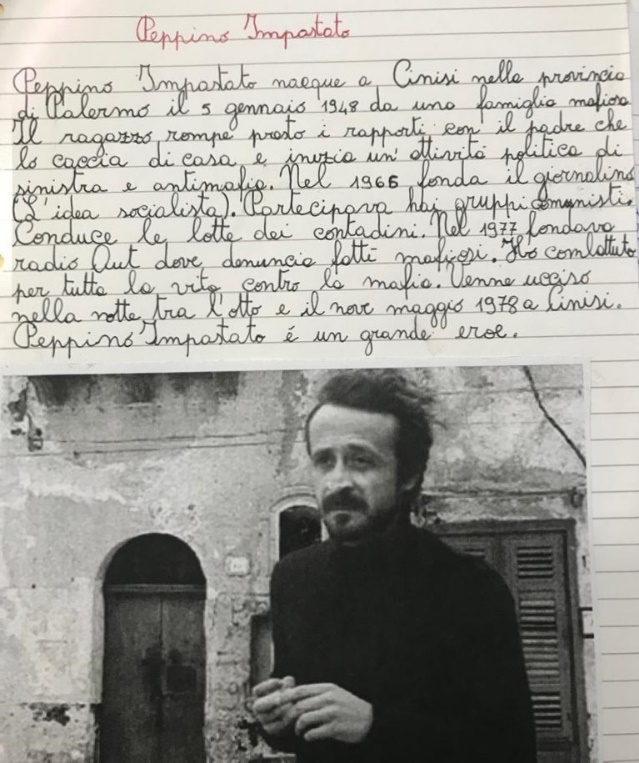 Peppino Impastato
Peppino Impastato nacque a Cinisi nella provincia
di Palermo il 5 gennaio 1948 da una famiglia mafiosa
Il ragazzo rompe presto i rapporti con il padre che
lo caccia di casa e inizia un' attività politica di
sinistra e antimafia. Nel 1965 fonda il giornalino
(L'idea socialista). Partecipava hai gruppi comunisti.
Conduce le lotte dei contadini. Nel 1977 fondava
radio Aut dove denuncia fatti mafiosi. Ho combattuto
per tutta la vita contro la mafia. Venne ucciso
nella notte tra l'otto e il nove maggio 1978 a Cinisi.
Peppino Impastato é un grande eroe.